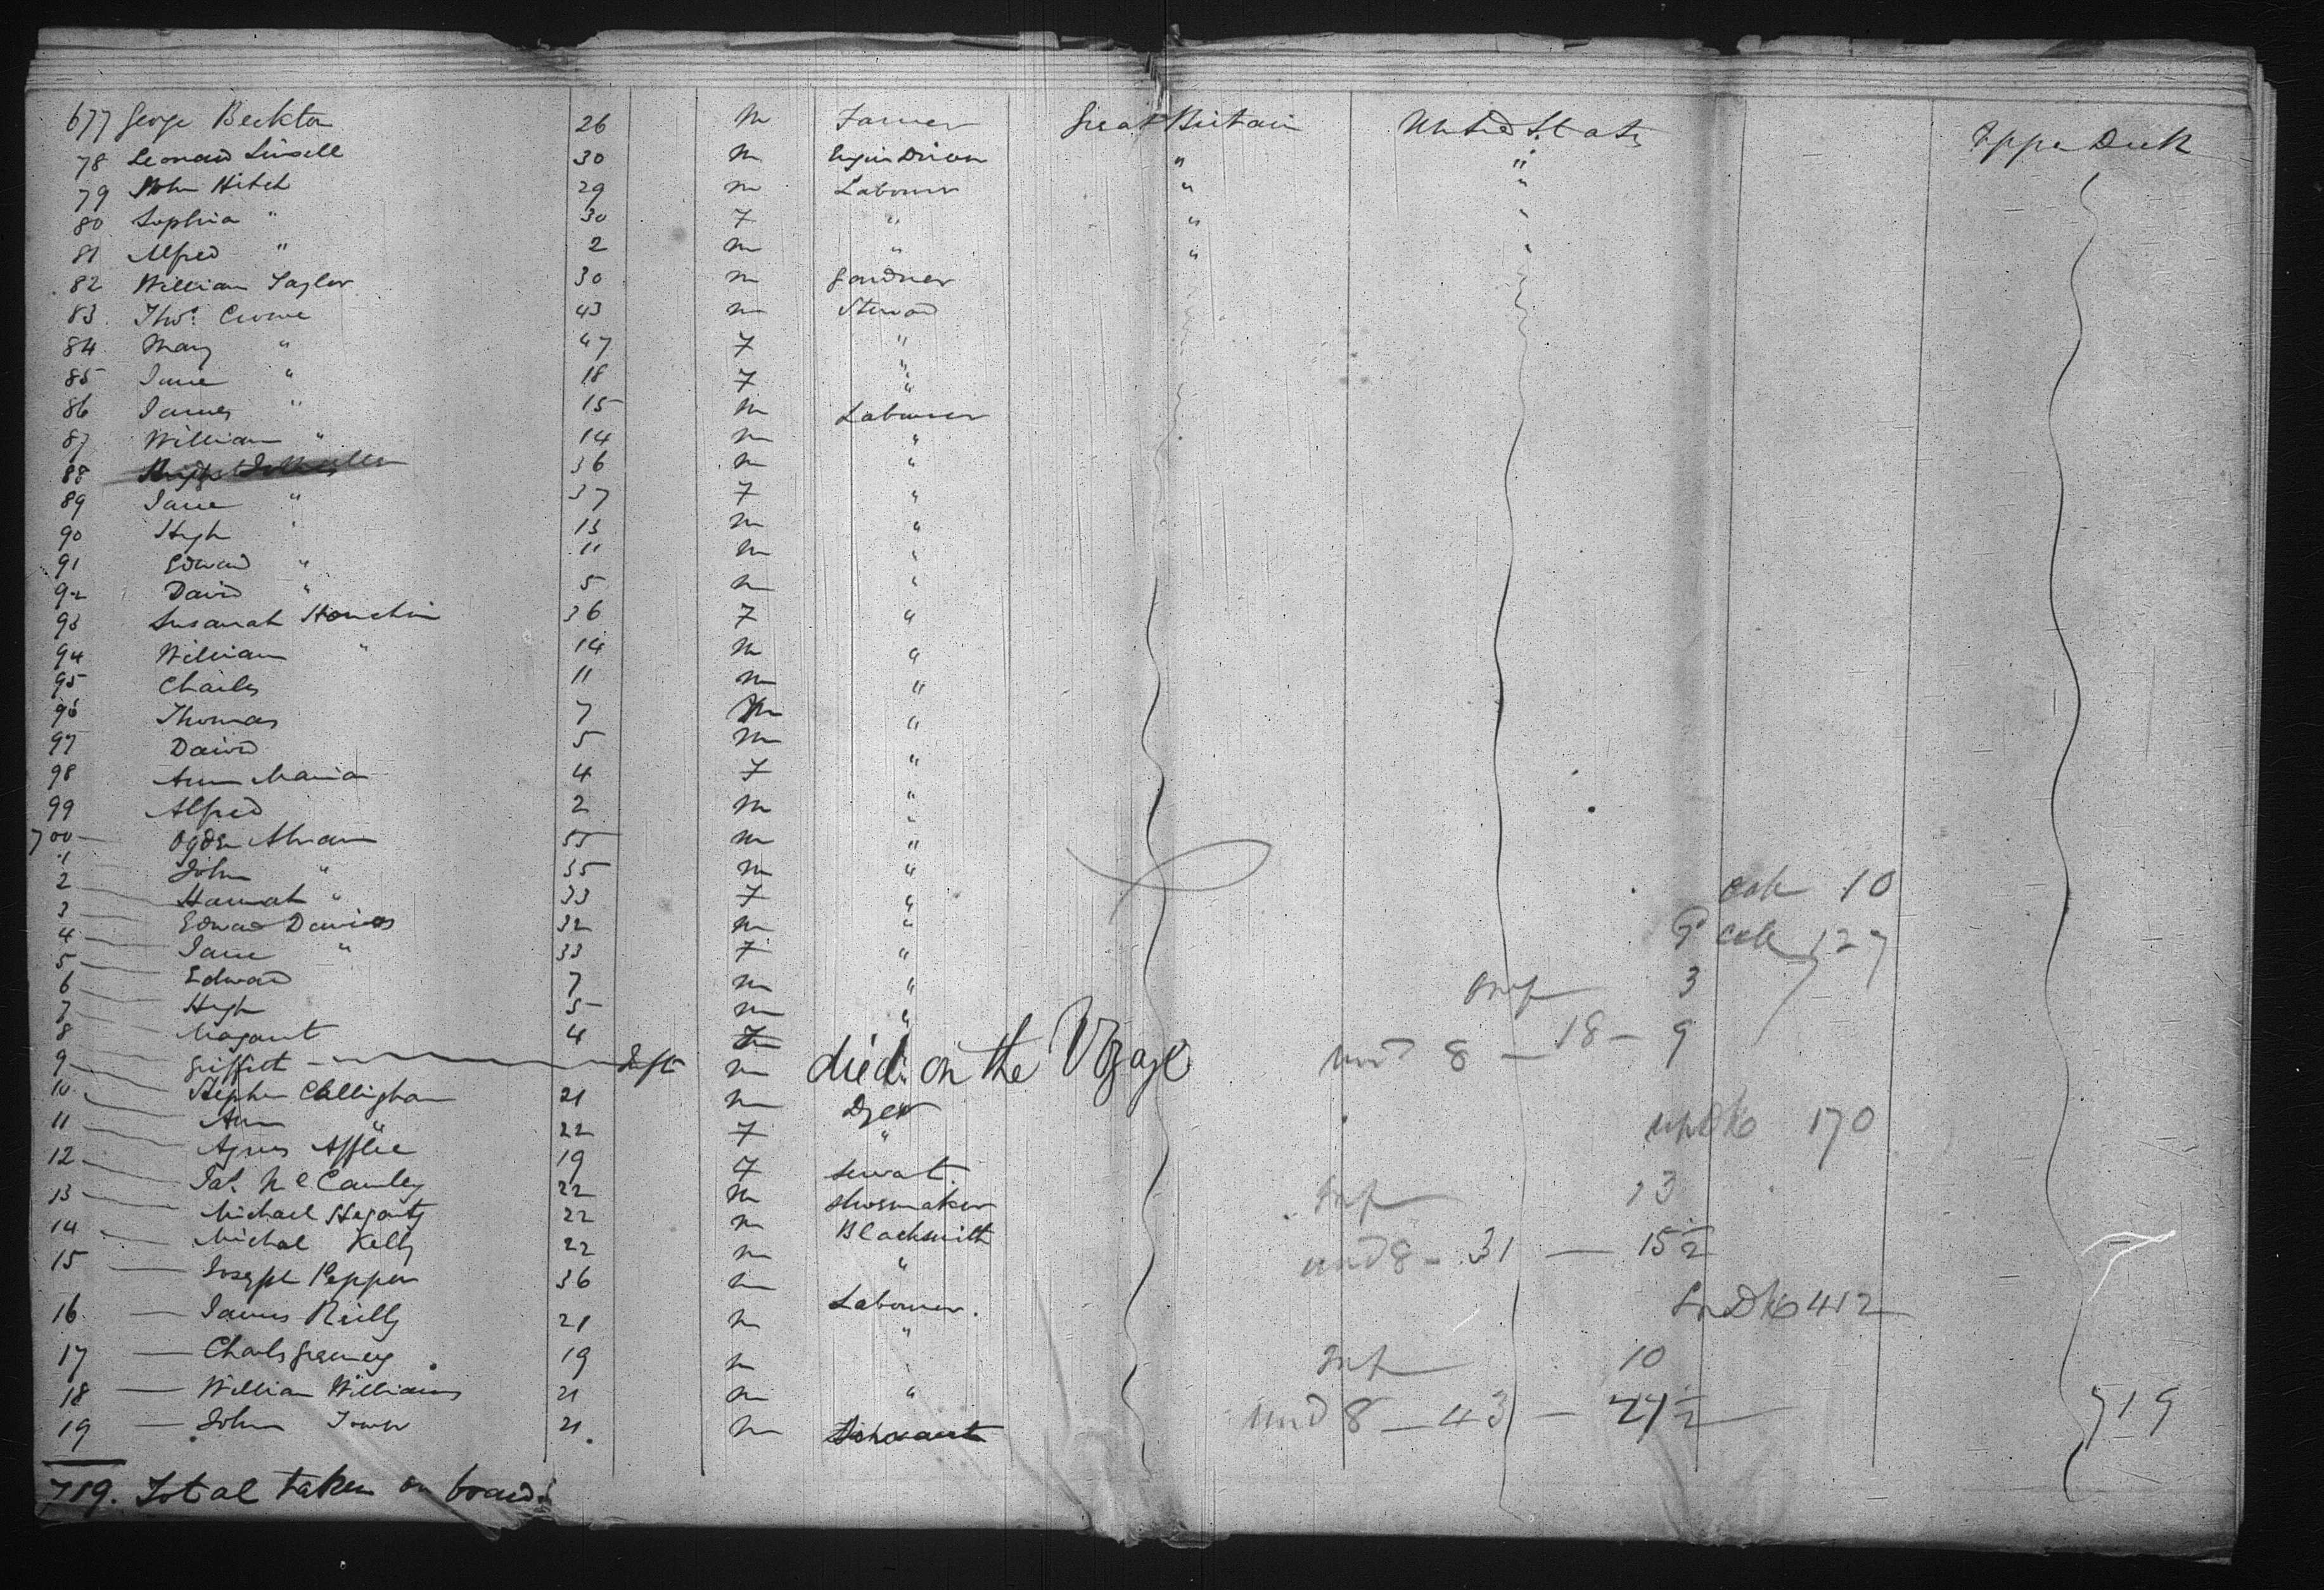 677 George Beckton 26 M Farmer Great Britain United States Upper Deck
78 Leonard Linsell 30 M Engin Driver " "
79 John Hitch 29 M Labourer " "
80 Sophia " 30 F " " "
81 Alfred " 2 M " " "
82 William Taylor 30 M Gardner
83 Thos. Crowe 43 M Steward
84 Mary " 47 F "
85 Jane " 18 F "
86 James " 15 M Labourer
87 William " 14 M "
88 36 M "
89 Jane " 37 F "
90 Hugh " 13 M "
91 Edward " 11 M "
92 David " 5 M "
93 Susanah Houchin 36 F "
94 William " 14 M "
95 Charles 11 M "
96 Thomas 7 M "
97 David 5 M "
98 Ann Maria 4 F "
99 Alfred 2 M "
700 Ogden Abram 55 M "
1 John " 35 M "
2 Hannah " 33 F "
3 Edward Davies 32 M "
4 Jane " 33 F "
5 Edward 7 M "
6 Hugh 5 M "
7 Margaret 4 F
8 Griffith Inft M died on the Voyage
9 Stephen Callighan 21 M Dyer
10 Ann " 22 F "
11 Agnes Afflec 19 F Servat.
12 Pat. McCauley 22 M Shoemaker
13 Michael Hegarty 22 M Blacksmith
14 Michal Kelly 22 M "
15 Joseph Pepper 36 M Labourer.
16 James Reilly 21 M "
17 Charls 19 M
18 William Williams 21 M "
19 John Town 21 M
719. Total taken on board.
Cab 10
2d Cab 127
Inf 3
und 8 — 18 — 9
up Dk 170
Inf 13
und 8 — 31 — 15 1/2
Dk 412
Inf 10
und 8 — 43 — 21 1/2
719